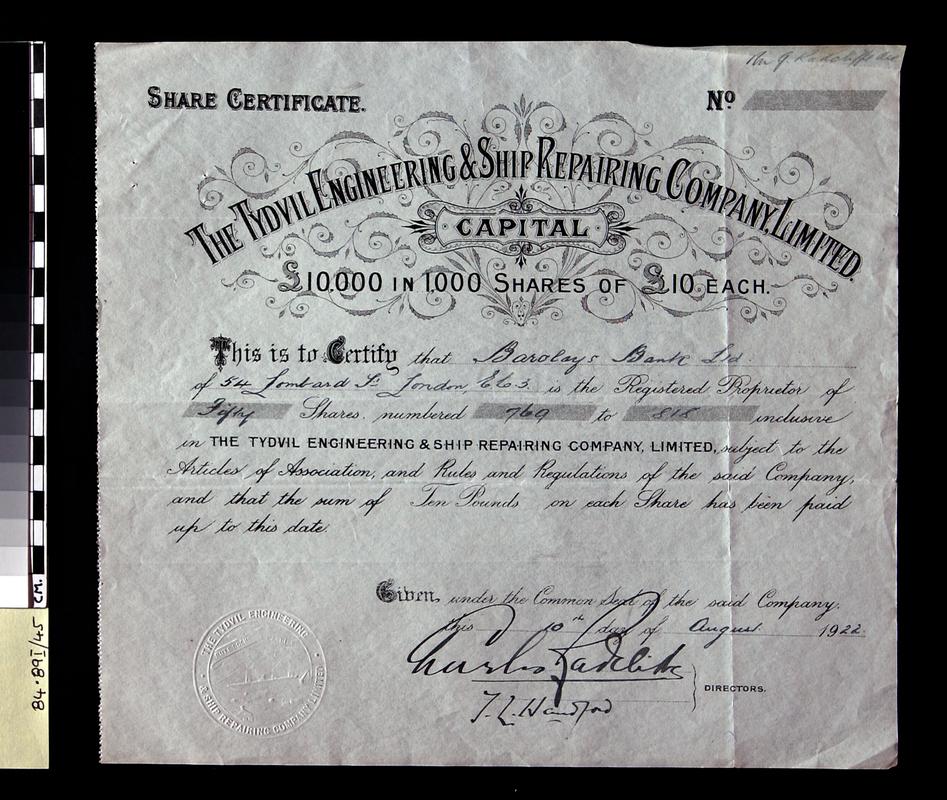 SHARE CERTIFICATE.
No
THE TYDVIL ENGINEERING & SHIP REPAIRING COMPANY, LIMITED.
CAPITAL
£10,000 IN 1,000 SHARES OF £10 EACH.
This is to Certify that Barclays Bank Ltd.
of 54 Lombard St London, E.C.3. is the Registered Proprietor of
Fifty Shares, numbered 769 to 818 inclusive
in THE TYDVIL ENGINEERING & SHIP REPAIRING COMPANY, LIMITED, subject to the
Articles of Association, and Rules and Regulations of the said Company,
and that the sum of Ten Pounds on each Share has been paid
up to this date.
Given, under the Common Seal of the said Company,
this 10th day of August 1922.
Charles Radcliffe
DIRECTORS.
THE TYDVIL ENGINEERING
& SHIP REPAIRING COMPANY LIMITED
CM.
84.89I/45